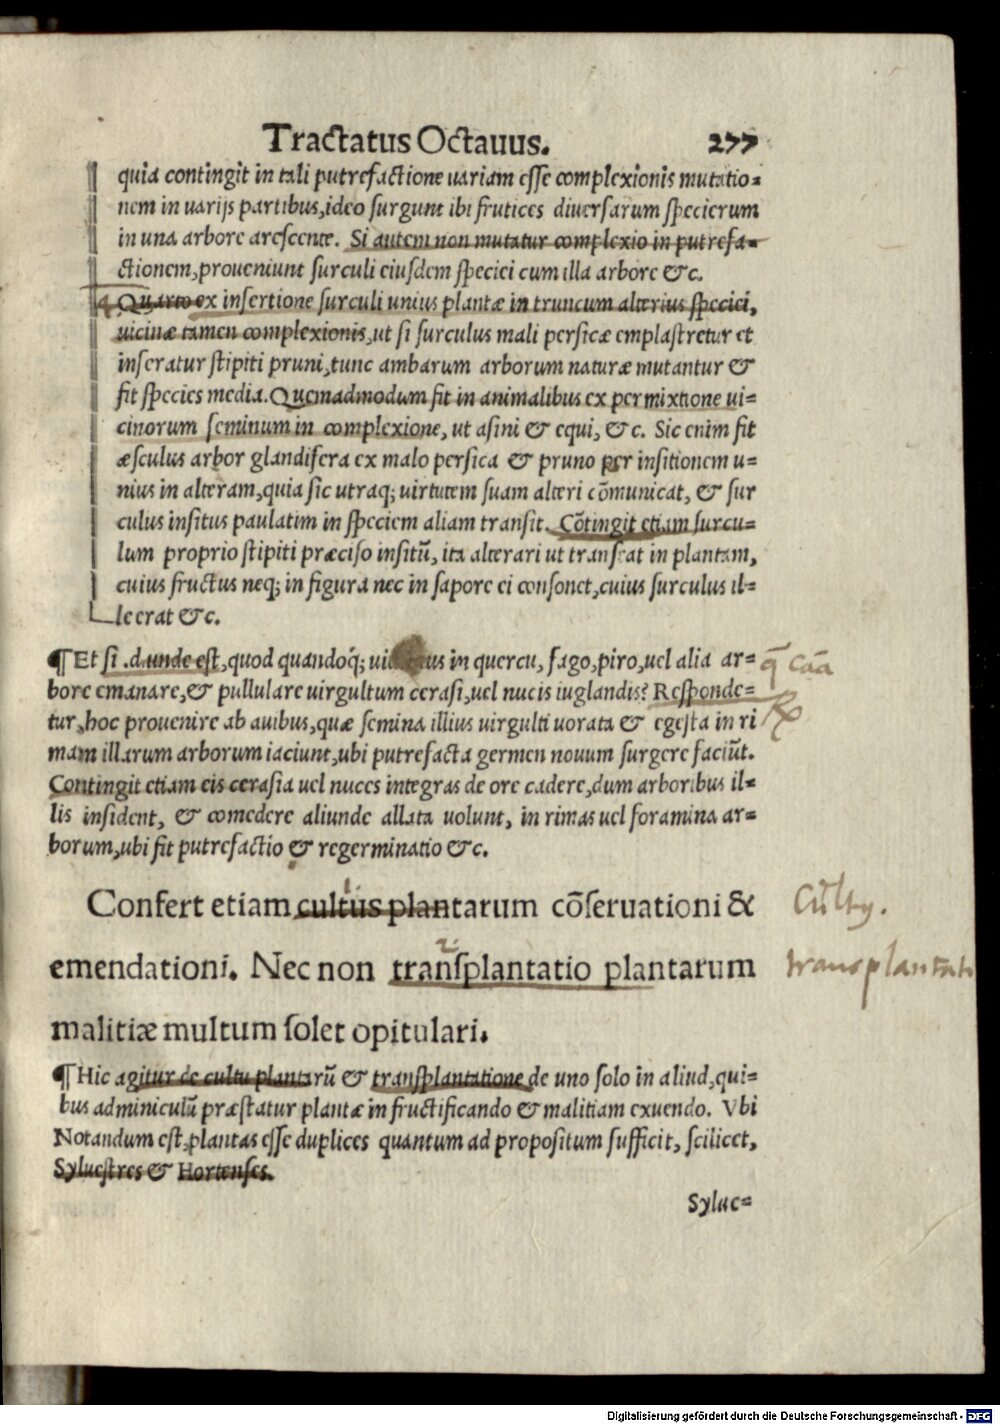 Tractatus Octauus. 277
quia contingit in tali putrefactione uariam esse complexionis mutatio=
nem in varijs partibus, ideo surgunt ibi frutices diuersarum specierum
in una arbore arescente. Si autem non mutatur complexio in putrefa=
ctionem, proueniunt surculi eiusdem speciei cum illa arbore &c.
4 Quarto ex insertione surculi unius plantæ in truncum alterius speciei,
uicinæ tamen complexionis, ut si surculus mali persicæ emplastretur et
inseratur stipiti pruni, tunc ambarum arborum naturæ mutantur &
fit species media. Quemadmodum fit in animalibus ex permixtione ui=
cinorum seminum in complexione, ut asini & equi, &c. Sic enim fit
æsculus arbor glandifera ex malo persica & pruno per insitionem u=
nius in alteram, quia sic utraq; uirtutem suam alteri cõmunicat, & sur
culus insitus paulatim in speciem aliam transit. Cõtingit etiam surcu=
lum proprio stipiti præciso insitũ, ita alterari ut transeat in plantam,
cuius fructus neq; in figura nec in sapore ei consonet, cuius surculus il=
le erat &c.
¶ Et si .d. unde est, quod quandoq́; in quercu, fago, piro, uel alia ar=
bore emanare, & pullulare uirgultum cerasi, uel nucis iuglandis? Responde=
tur, hoc prouenire ab auibus, quæ semina illius uirgulti uorata & egesta in ri
mam illarum arborum iaciunt, ubi putrefacta germen nouum surgere faciũt.
Contingit etiam eis cerasia uel nuces integras de ore cadere, dum arboribus il=
lis insident, & comedere aliunde allata uolunt, in rimas uel foramina ar=
borum, ubi fit putrefactio & regerminatio &c.
Confert etiam cultus plantarum cõseruationi &
emendationi. Nec non transplantatio plantarum
malitiæ multum solet opitulari.
¶ Hic agitur de cultu plantarũ & transplantatione de uno solo in aliud, qui=
bus adminiculũ præstatur plantæ in fructificando & malitiam exuendo. Vbi
Notandum est, plantas esse duplices quantum ad propositum sufficit, scilicet,
Syluestres & Hortenses.
Sylue=
transplantati
Digitalisierung gefördert durch die Deutsche Forschungsgemeinschaft - DFG